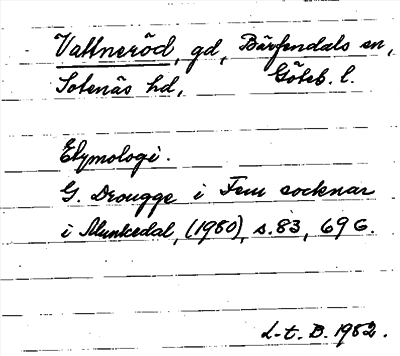 Vattneröd, gd, Bärfendals sn,
Sotenäs hd, Göteb. l.
Etymologi.
G. Drougge i Fem socknar
i Munkedal, (1980), s. 83, 696.
L-t. B. 1982.